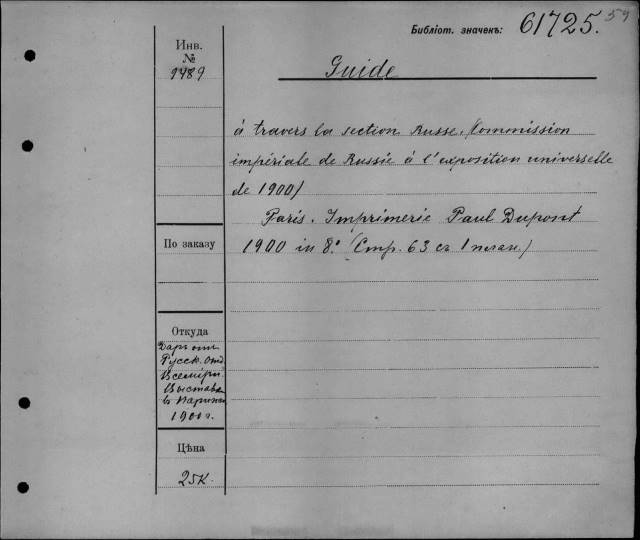 Библіот. значекъ: 61725.
Инв.
№
9489
Guide
à travers la section Russe. (Commission
impériale de Russie à l'exposition universelle
de 1900)
Paris. Imprimerie Paul Dupont
1900 in 8° (Стр. 63 съ 1 план.)
По заказу
Откуда
Даръ отъ
Русск. отд.
Всемірн.
Выставки
въ Парижѣ
1900 г.
Цѣна
25 к.